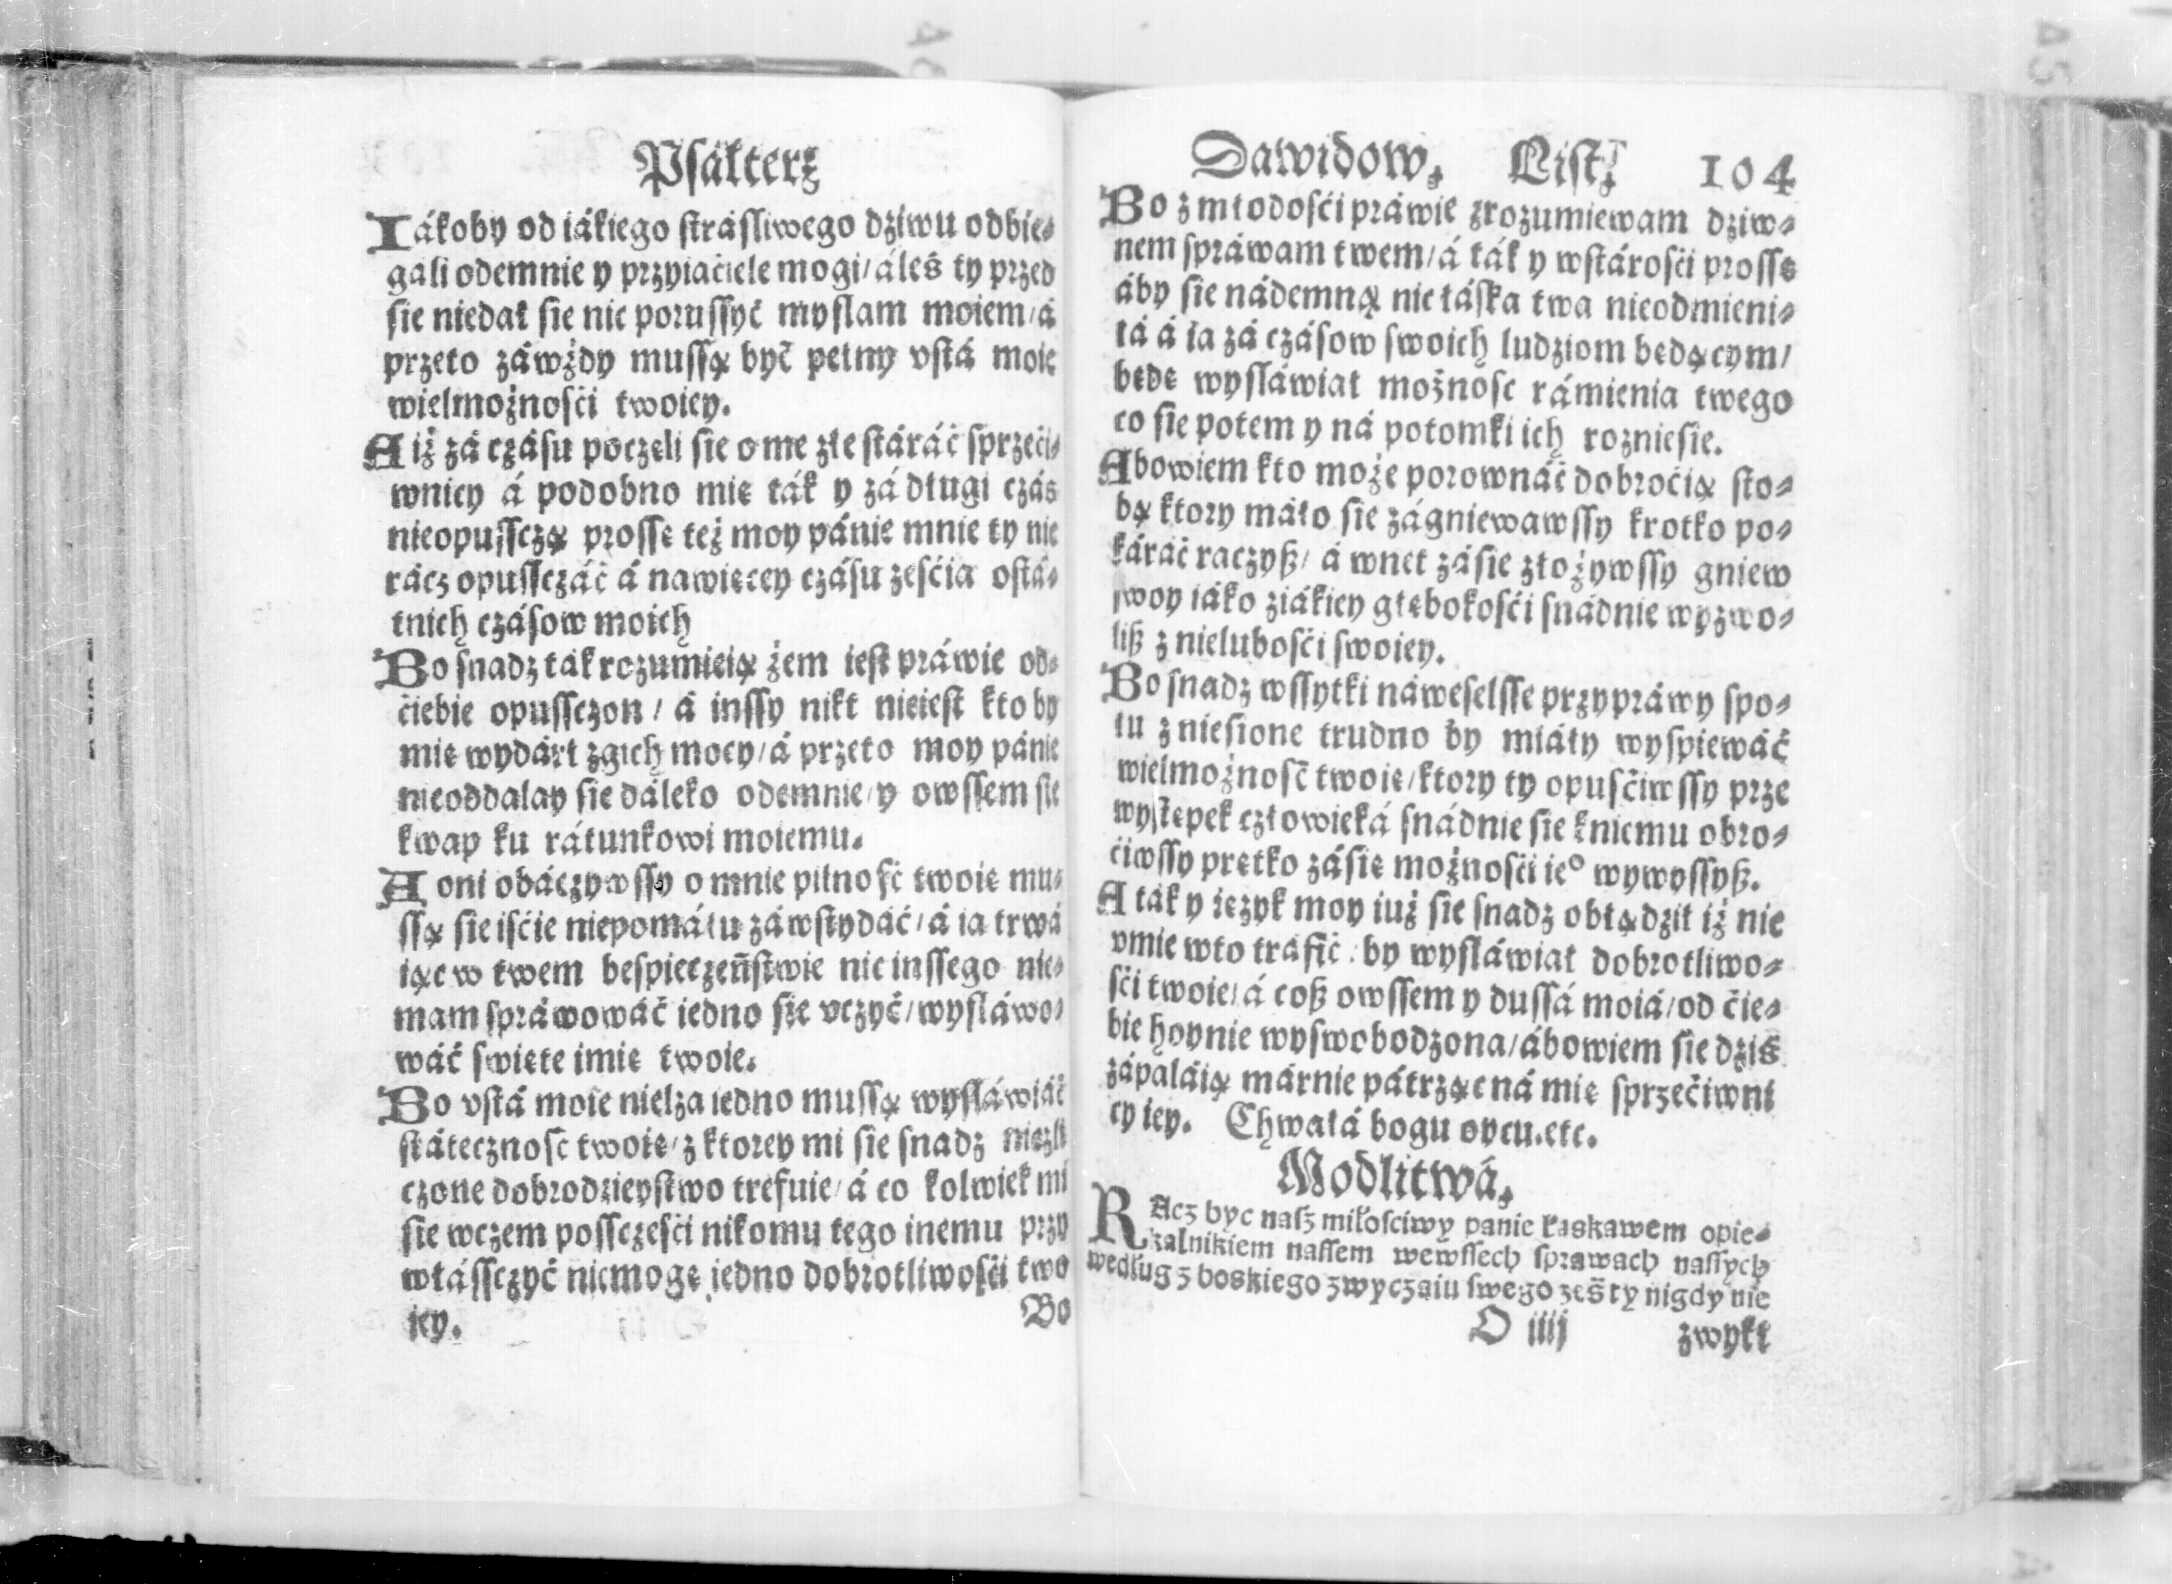 Psałterz
Iákoby od iákiego strásliwego dziwu odbie⸗
gáli odemnie y przyiaćiele mogi/áleś ty przed
sie niedał sie nic porussyć myslam moiem/á
przeto záwżdy mussą być pełny vstá moie
wielmożnosći twoiey.
A iż zá czásu poczęli sie o me złe stáráć sprzeći⸗
wnicy á podobno mię ták y zá długi czás
nieopussczą prossę też moy pánie mnie ty nie
rácz opussczáć á nawięcey czásu ześćia ostá⸗
tnich czásow moich
Bo snadz ták rozumieią żem iest práwie od⸗
ćiebie opussczon / á inssy nikt nieiest kto by
mię wydárł zgich mocy/á przeto moy pánie
nieoddalay sie dáleko odemnie/y owssem sie
kwap ku rátunkowi moiemu.
A oni obáczywssy o mnie pilnosć twoię mu⸗
ssą sie isćie niepomáłu záwstydáć/á ia trwá
iąc w twem bespieczeństwie nic inssego nie⸗
mam spráwowáć iedno się vczyć/wysláwo⸗
wáć swięte imię twoie.
Bo vstá moie nielza iedno mussą wysláwiáć
státecznosc twoię/z ktorey mi sie snadz niezli
czone dobrodzieystwo trefuie/á co kolwiek mi
sie wczem possczesći nikomu tego inemu przy
włássczyć niemogę iedno dobrotliwosći two
iey.
Bo
Dawidow. List. 104
Bo z młodosći práwie zrozumiewam dziw⸗
nem spráwam twem/á ták y wstárosći prossę
áby sie nádemną nic łáska twa nieodmieni⸗
łá á ia zá czásow swoich ludziom będącym/
będę wysláwiał możnosc rámienia twego
co sie potem y ná potomki ich rozniesie.
Abowiem kto może porownáć dobroćią sto⸗
bą ktory máło sie zágniewawssy krotko po⸗
káráć raczyß/ á wnet zásię złożywssy gniew
swoy iáko ziákiey głębokosći snádnie wyzwo⸗
liß z nielubosći swoiey.
Bo snadz wssytki náweselsse przypráwy spo⸗
łu zniesione trudno by miáły wyspiewáć
wielmożnosć twoię/ktory ty opusćiwssy prze
występek człowieká snádnie sie kniemu obro⸗
ćiwssy prętko zásię możnosći ieº wywyssyß.
A ták y ięzyk moy iuż sie snadz obłądził iż nie
vmie wto tráfić by wysláwiał dobrotliwo⸗
sći twoie/á coß owssem y dussá moiá/od ćie⸗
bie hoynie wyswobodzona/ábowiem sie dziś
zápaláią márnie pátrząc ná mię sprzećiwni
cy iey. Chwałá bogu oycu.etc.
Modlitwá.
RAcz byc nasz miłosciwy panie łaskawem opie⸗
kalnikiem nassem wewssech sprawach nassych
według z boskiego zwyczaiu swego ześ ty nigdy nie
O iiij zwykł